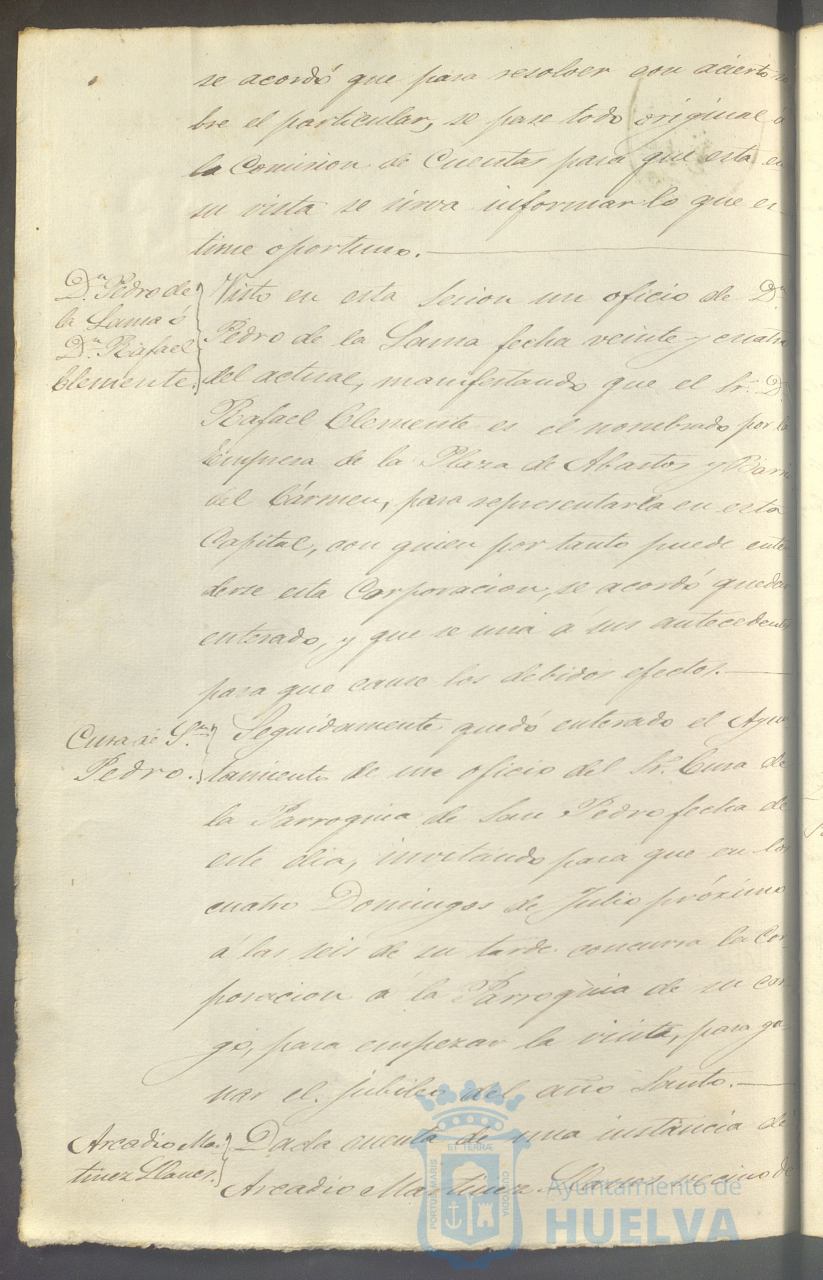 se acordó que para resolver con acierto so
bre el particular, se pase todo original á
la Comision de Cuentas para que esta en
su vista se sirva informar lo que es-
time oportuno.
Dn. Pedro de
la Lama ó
Dn. Rafael
Clemente.
Visto en esta Sesion un oficio de Dn.
Pedro de la Lama fecha veinte y cuatro
del actual, manifestando que el Sr. Dn.
Rafael Clemente es el nombrado por la
Empresa de la Plaza de Abastos y Barrio
del Cármen, para representarla en esta
Capital, con quien por tanto puede enten
derse esta Corporacion, se acordó quedar
enterado, y que se una á sus antecedentes
para que cause los debidos efectos.
Cura de Sn.
Pedro.
Seguidamente quedó enterado el Ayun
tamiento de un oficio del Sr. Cura de
la Parroquia de San Pedro fecha de
este dia, invitando para que en los
cuatro Domingos de Julio próximo
á las seis de su tarde concurra la Cor-
poracion á la Parroquia de su car-
go, para empezar la visita, para ga-
nar el jubileo del año Santo.
Arcadio Mar
tinez Llanes.
Dada cuenta de una instáncia de
Arcadio Martinez Llanes vecino de
PORTUS MARIS
ET TERRÆ
CUSTODIA
Ayuntamiento de
HUELVA